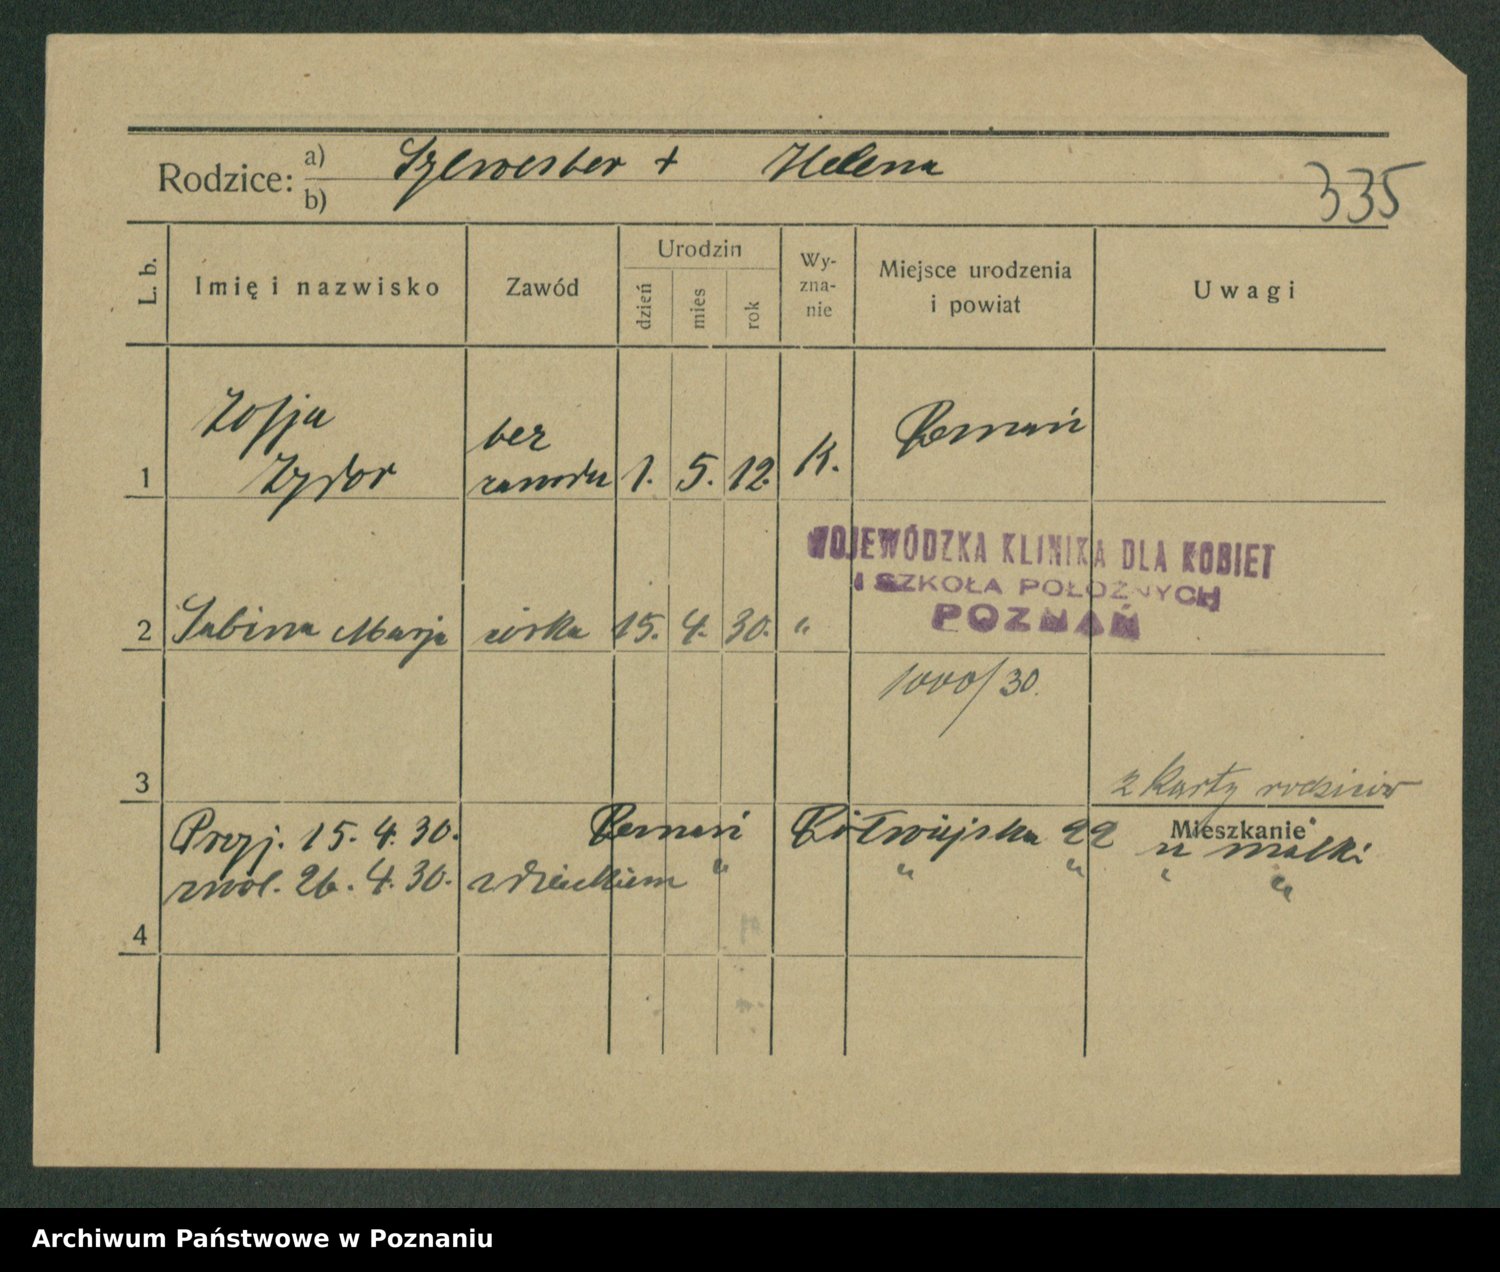 Rodzice: a) Sylwester + Helena
b)
335
L. b.
Imię i nazwisko
Zawód
Urodzin
dzień
mies
rok
Wy-
zna-
nie
Miejsce urodzenia
i powiat
Uwagi
Zofja
Zydor
bez
zawodu
1 1. 5. 12. K. Poznań
WOJEWÓDZKA KLINIKA DLA KOBIET
I SZKOŁA POŁOŻNYCH
POZNAŃ
2 Sabina Marja córka 15. 4. 30. "
1000/30.
3
2 Karty rodziców
Mieszkanie
Przyj. 15. 4. 30. Poznań Półwiejska 22 u matki
zwol. 26. 4. 30. z dzieckiem " " " " "
4
Archiwum Państwowe w Poznaniu